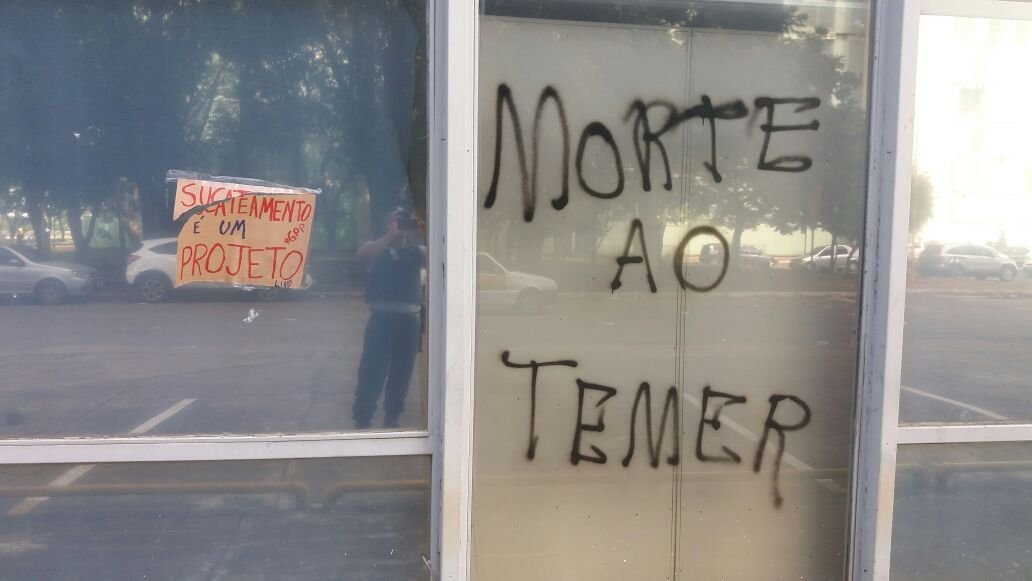 SUCATEAMENTO
É UM
PROJETO
#GPP
MORTE
AO
TEMER